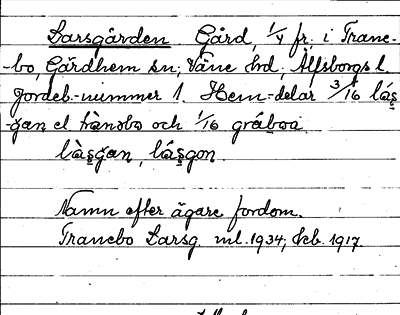 Larsgården Gård, 1/4 fr. i Trane-
-bo, Gärdhem sn; Väne hd, Älfsborgs l.
Jordeb.-nummer 1. Hem.-delar 3/16 lás̱
-gan el trànəbo och 1/16 grábωa
làs̱gan, lás̱gon.
Namn efter ägare fordom.
Tranebo Larsg. ml. 1934, Jeb. 1917.